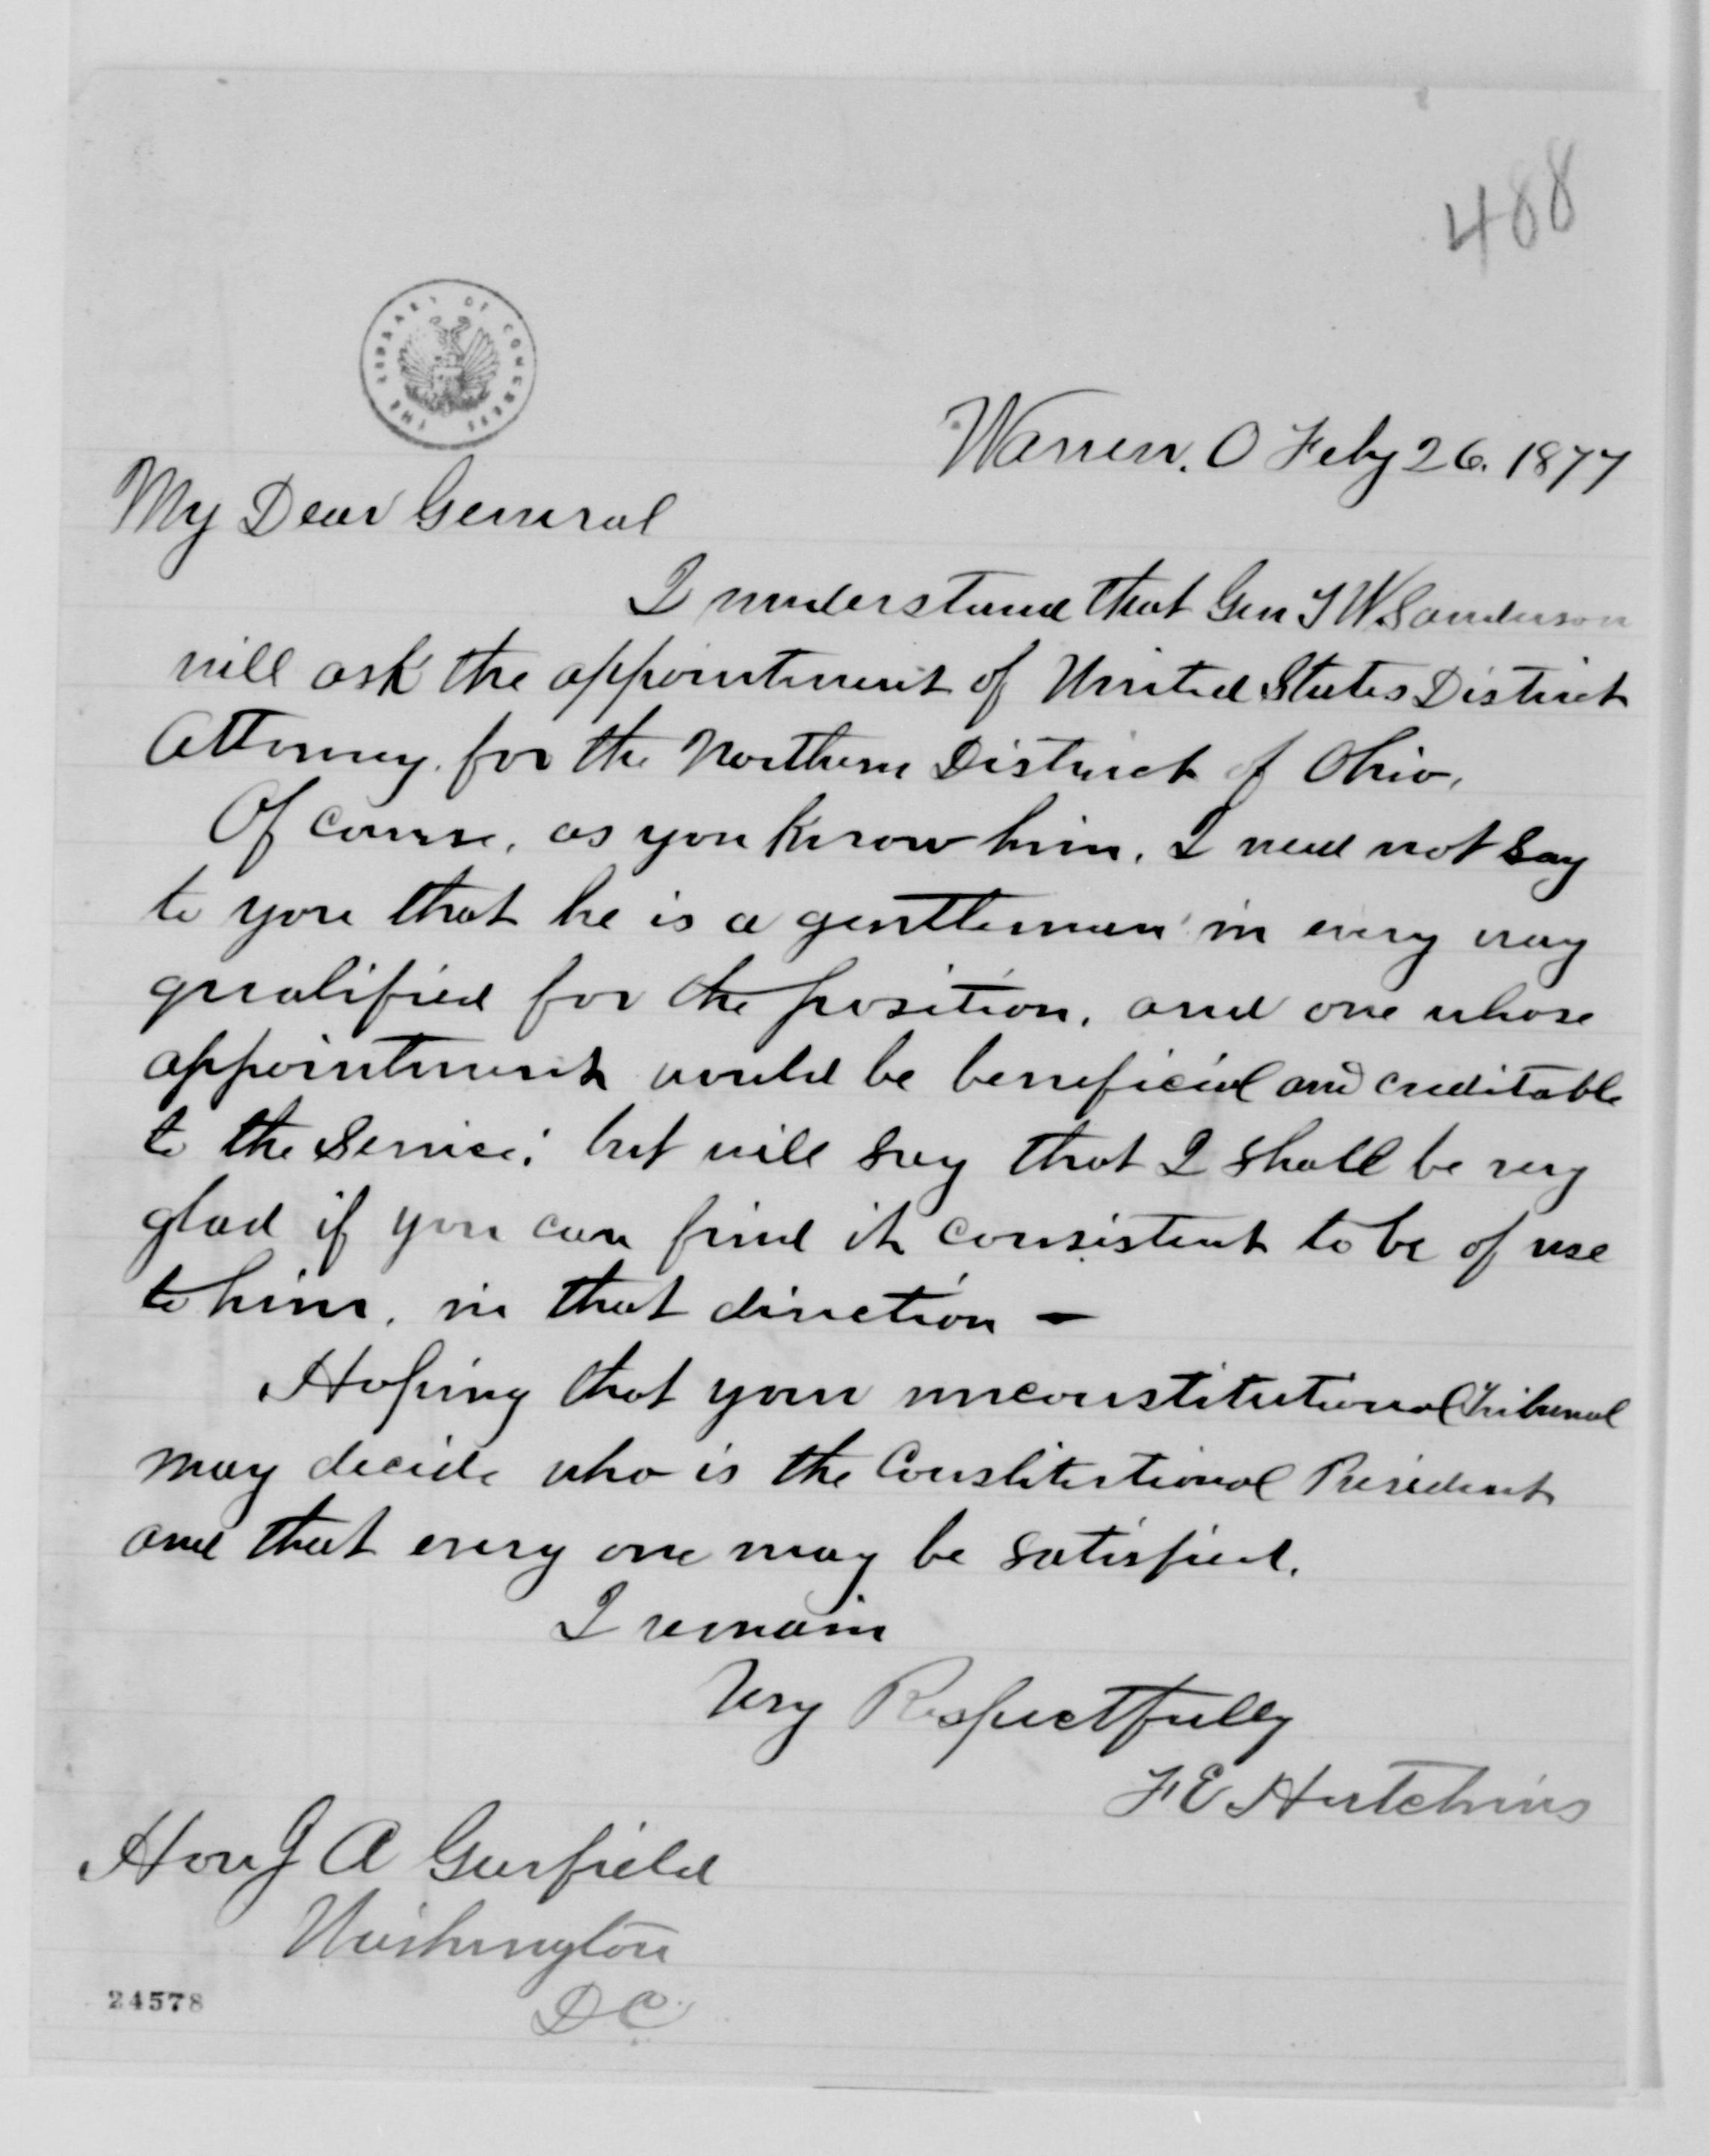 488
THE LIBRARY OF CONGRESS
Warren. O Feby 26. 1877
My Dear General
I understand that Gen T W Sanderson
will ask the appointment of United States District
Attorney. for the Northern District of Ohio,
Of course, as you Know him, I need not say
to you that he is a gentleman in every way
qualified for the position, and one whose
appointment would be beneficial and creditable
to the Service; but will say that I shall be very
glad if you can find it consistent to be of use
to him, in that direction —
Hoping that your unconstitutional Tribunal
may decide who is the Constitutional President
and that every one may be satisfied.
I remain
Very Respectfully
F E Hutchins
Hon J A Garfield
Washington
D C
24578